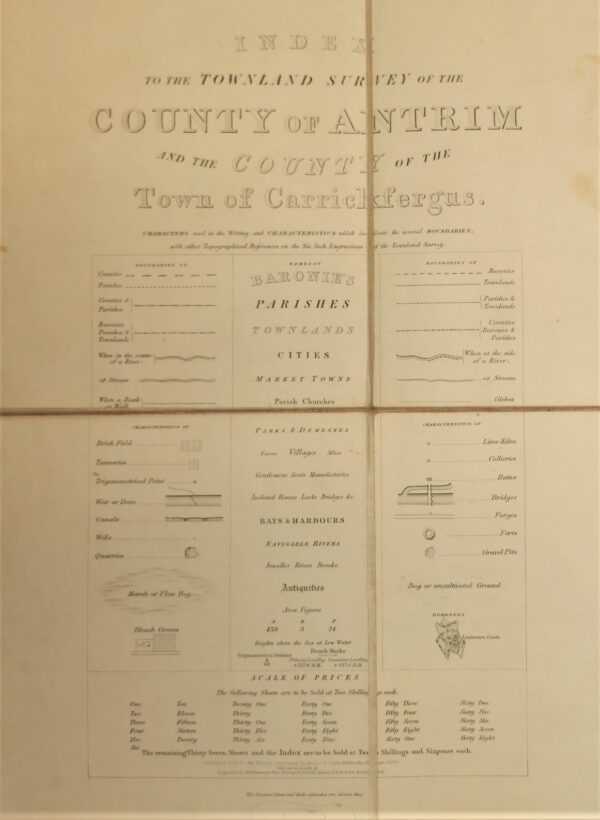 INDEX
TO THE TOWNLAND SURVEY OF THE
COUNTY OF ANTRIM
AND THE COUNTY OF THE
Town of Carrickfergus.
CHARACTERS used in the Writing, and CHARACTERISTICS which the several BOUNDARIES;
with other Topographical References on the Six Inch Engravings of the Townland Survey.
BOUNDARIES OF
Counties
Parishes
Counties &
Parishes
Baronies
Parishes &
Townlands
When in the centre
of a River
or Stream
When a Road
or Wall
NAMES OF
BARONIES
PARISHES
TOWNLANDS
CITIES
MARKET TOWNS
Parish Churches
BOUNDARIES OF
Baronies
Townlands
Parishes &
Townlands
Counties
Baronies &
Parishes
When at the side
of a River
or Stream
Glebes
CHARACTERISTICS OF
Brick Field
Tanneries
Trigonometrical Point
Weir or Dam
Canals
Wells
Quarries
Marsh or Flow Bog
Bleach Greens
PARKS & DEMESNES
Farms Villages Mines
Gentlemens Seats Manufactories
Isolated Houses Locks Bridges &c.
BAYS & HARBOURS
NAVIGABLE RIVERS
Smaller Rivers Brooks
Antiquities
Area Figures
A R P
159 3 24
Heights above the Sea at Low Water
Bench Marks
CHARACTERISTICS OF
Lime Kilns
Collieries
Ruins
Bridges
Forges
Forts
Gravel Pits
Bog or uncultivated Ground
DEMESNES
Castle
SCALE OF PRICES
The following Sheets are to be Sold at Two Shillings each.
One Ten Twenty One Forty One Fifty Three Sixty Two
Two Eleven Thirty Forty Two Fifty Four Sixty Five
Three Fifteen Thirty One Forty Seven Fifty Seven Sixty Six
Four Sixteen Thirty Five Forty Eight Fifty Eight Sixty Seven
Five Twenty Thirty Six Forty Nine Sixty One Sixty Eight
Six
The remaining Thirty Seven Sheets and the Index are to be Sold at Two Shillings and Sixpence each.